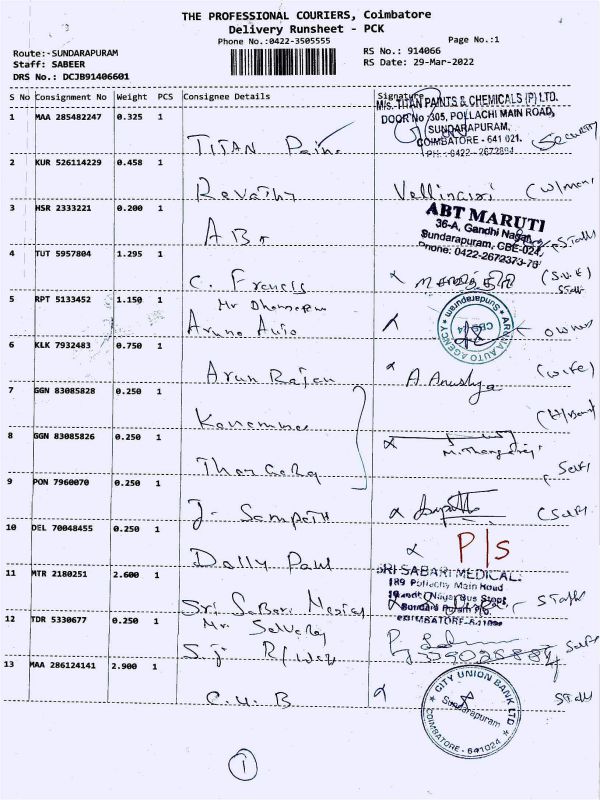 THE PROFESSIONAL COURIERS, Coimbatore
Delivery Runsheet - PCK
Phone No.:0422-3505555
Page No.:1
Route:-SUNDARAPURAM
RS No.: 914066
Staff: SABEER
RS Date: 29-Mar-2022
DRS No.: DCJB91406601
S No Consignment No Weight PCS Consignee Details Signature
M/s. TITAN PAINTS & CHEMICALS (P) LTD.
DOOR No :305, POLLACHI MAIN ROAD,
SUNDARAPURAM,
COIMBATORE - 641 021.
PH : 0422 - 2672884
1 MAA 285482247 0.325 1
TITAN Security
2 KUR 526114229 0.458 1
Revathy
3 HSR 2333221 0.200 1
ABT MARUTI
36-A, Gandhi Nagar,
Sundarapuram, CBE-024,
Phone: 0422-2672373-76
ABT Staff
4 TUT 5957804 1.295 1
C. Francis
5 RPT 5133452 1.150 1
Mr
Aruna Auto owner
ARUNA AUTO AGENCY
Sundarapuram
CBE-24
6 KLK 7932483 0.750 1
Arun Rajan A Anushya (wife)
7 GGN 83085828 0.250 1
8 GGN 83085826 0.250 1
M. Thangaraj
(Self)
9 PON 7960070 0.250 1
J. Sampath (Self)
10 DEL 70048455 0.250 1
Dolly Paul P/S
11 MTR 2180251 2.600 1
SRI SABARI MEDICAL
189 Pollachy Main Road
Gandhi Nagar Bus Stop
Sundara Puram P.O.
COIMBATORE-641024
Sri Sabari Medical Staff
12 TDR 5330677 0.250 1
Mr. Selvaraj
S.J. Self
13 MAA 286124141 2.900 1
C.U.B Staff
CITY UNION BANK LTD
Sundarapuram
COIMBATORE - 641024
1